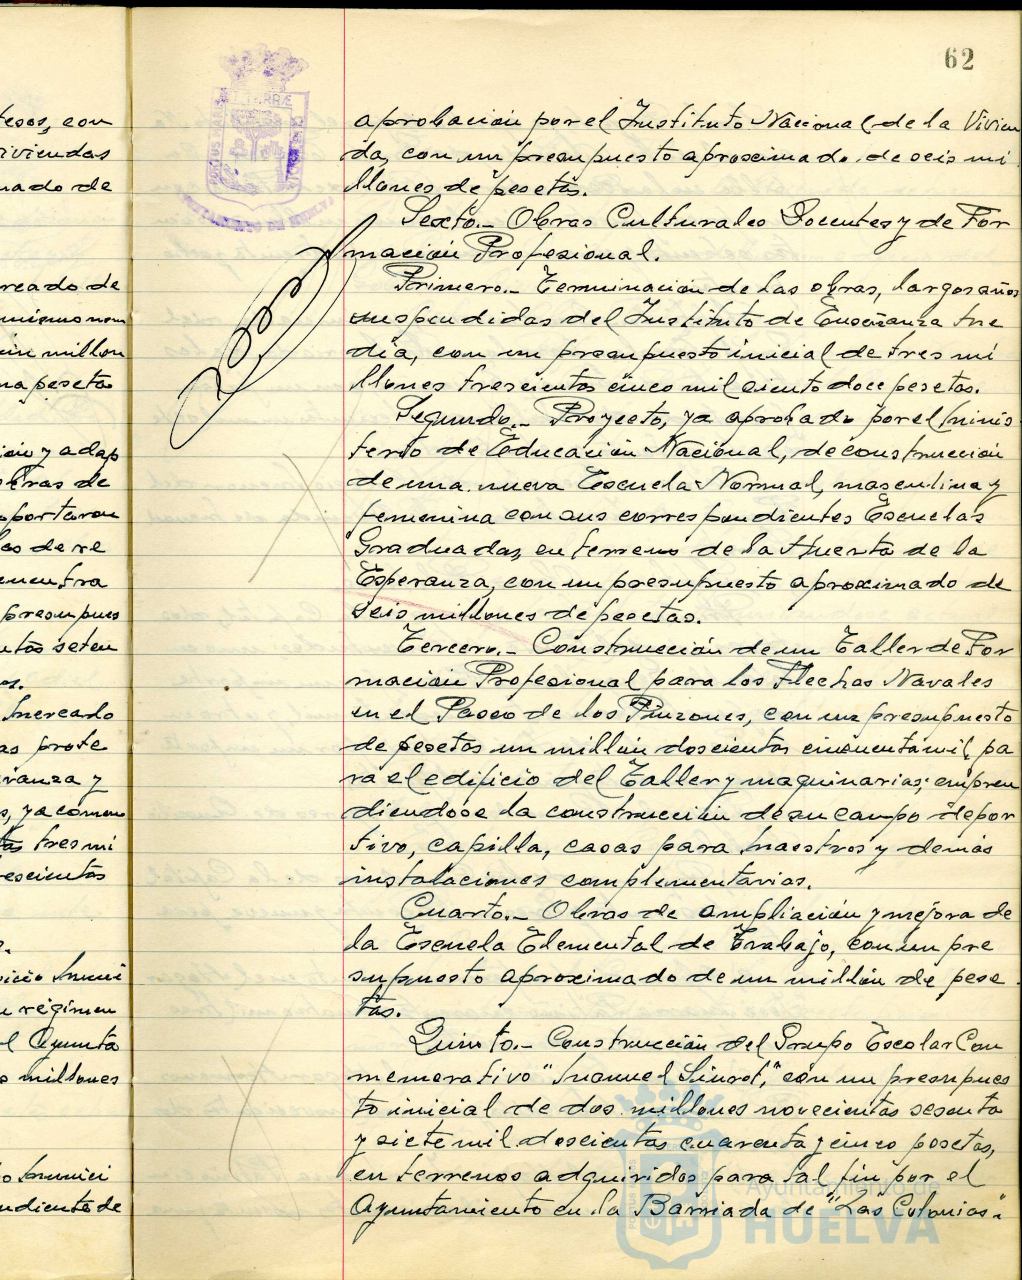 62
tesos, con
viviendas
mado de
aprobación por el Instituto Nacional de la Vivien
da, con un presupuesto aproximado de seis mi
llones de pesetas.
Sexto.- Obras Culturales Docentes y de For
mación Profesional.
Primero.- Terminación de las obras, largos años
suspendidas del Instituto de Enseñanza Me
dia, con un presupuesto inicial de tres mi
llones trescientas cinco mil ciento doce pesetas.
Segundo.- Proyecto, ya aprobado por el Minis
terio de Educación Nacional, de construcción
de una nueva Escuela Normal, masculina y
femenina con sus correspondientes Escuelas
Graduadas, en terreno de la Huerta de la
Esperanza, con un presupuesto aproximado de
seis millones de pesetas.
Tercero.- Construcción de un Taller de For
mación Profesional para los Flechas Navales
en el Paseo de los Pinzones, con un presupuesto
de pesetas un millón doscientas cincuenta mil pa
ra el edificio del Taller y maquinarias; empren
diendose la construcción de su campo depor
tivo, capilla, casas para Maestros y demás
instalaciones complementarias.
Cuarto.- Obras de ampliación y mejora de
la Escuela Elemental de Trabajo, con un pre
supuesto aproximado de un millón de pese
tas.
Quinto.- Construcción del Grupo Escolar Con
memorativo "Manuel Siurot," con un presupues
to inicial de dos millones novecientas sesenta
y siete mil doscientas cuarenta y cinco pesetas,
en terrenos adquiridos para tal fin por el
Ayuntamiento en la Barriada de "Las Colonias".
Ayuntamiento de
HUELVA